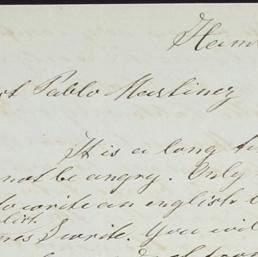 Ham
Pablo Martinez
It is a long
not be angry. Only
to write an english
lish
I write. You wil